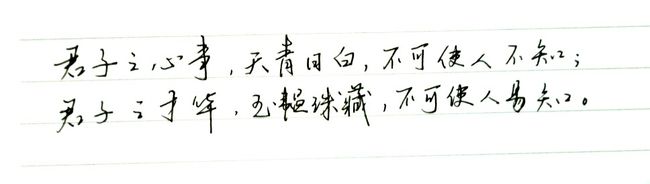 君子之心事，天青日白，不可使人不知；
君子之才华，玉韫珠藏，不可使人易知。